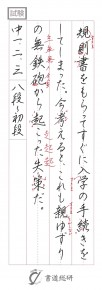 試験
規則書をもらってすぐに入学の手続きを
してしまった。今考えると、これも親ゆずり
の無鉄砲から起こった失策だ。
中一、二、三 八段〜初段
書道総研